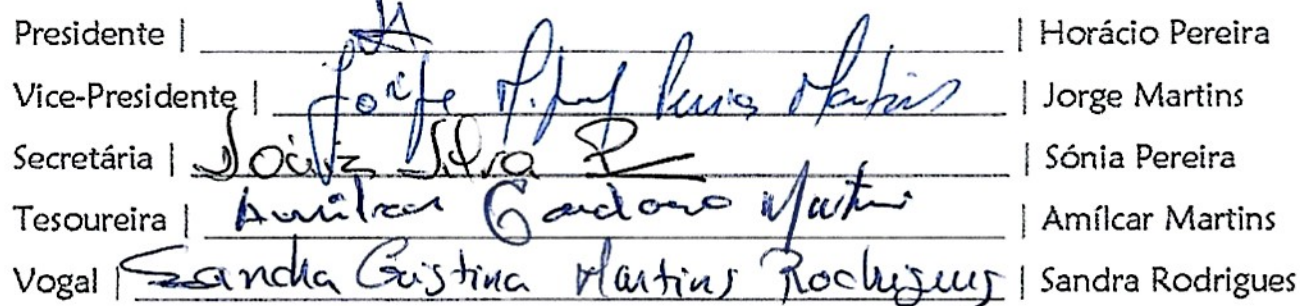 Presidente | | Horácio Pereira
Vice-Presidente | Jorge Miguel Martins | Jorge Martins
Secretária | Sónia Silva | Sónia Pereira
Tesoureira | Amílcar Cardoso Martins | Amílcar Martins
Vogal | Sandra Cristina Martins Rodrigues | Sandra Rodrigues